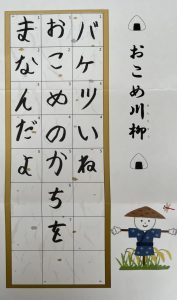 おこめ川柳
バケツいね
おこめのかちを
まなんだよ